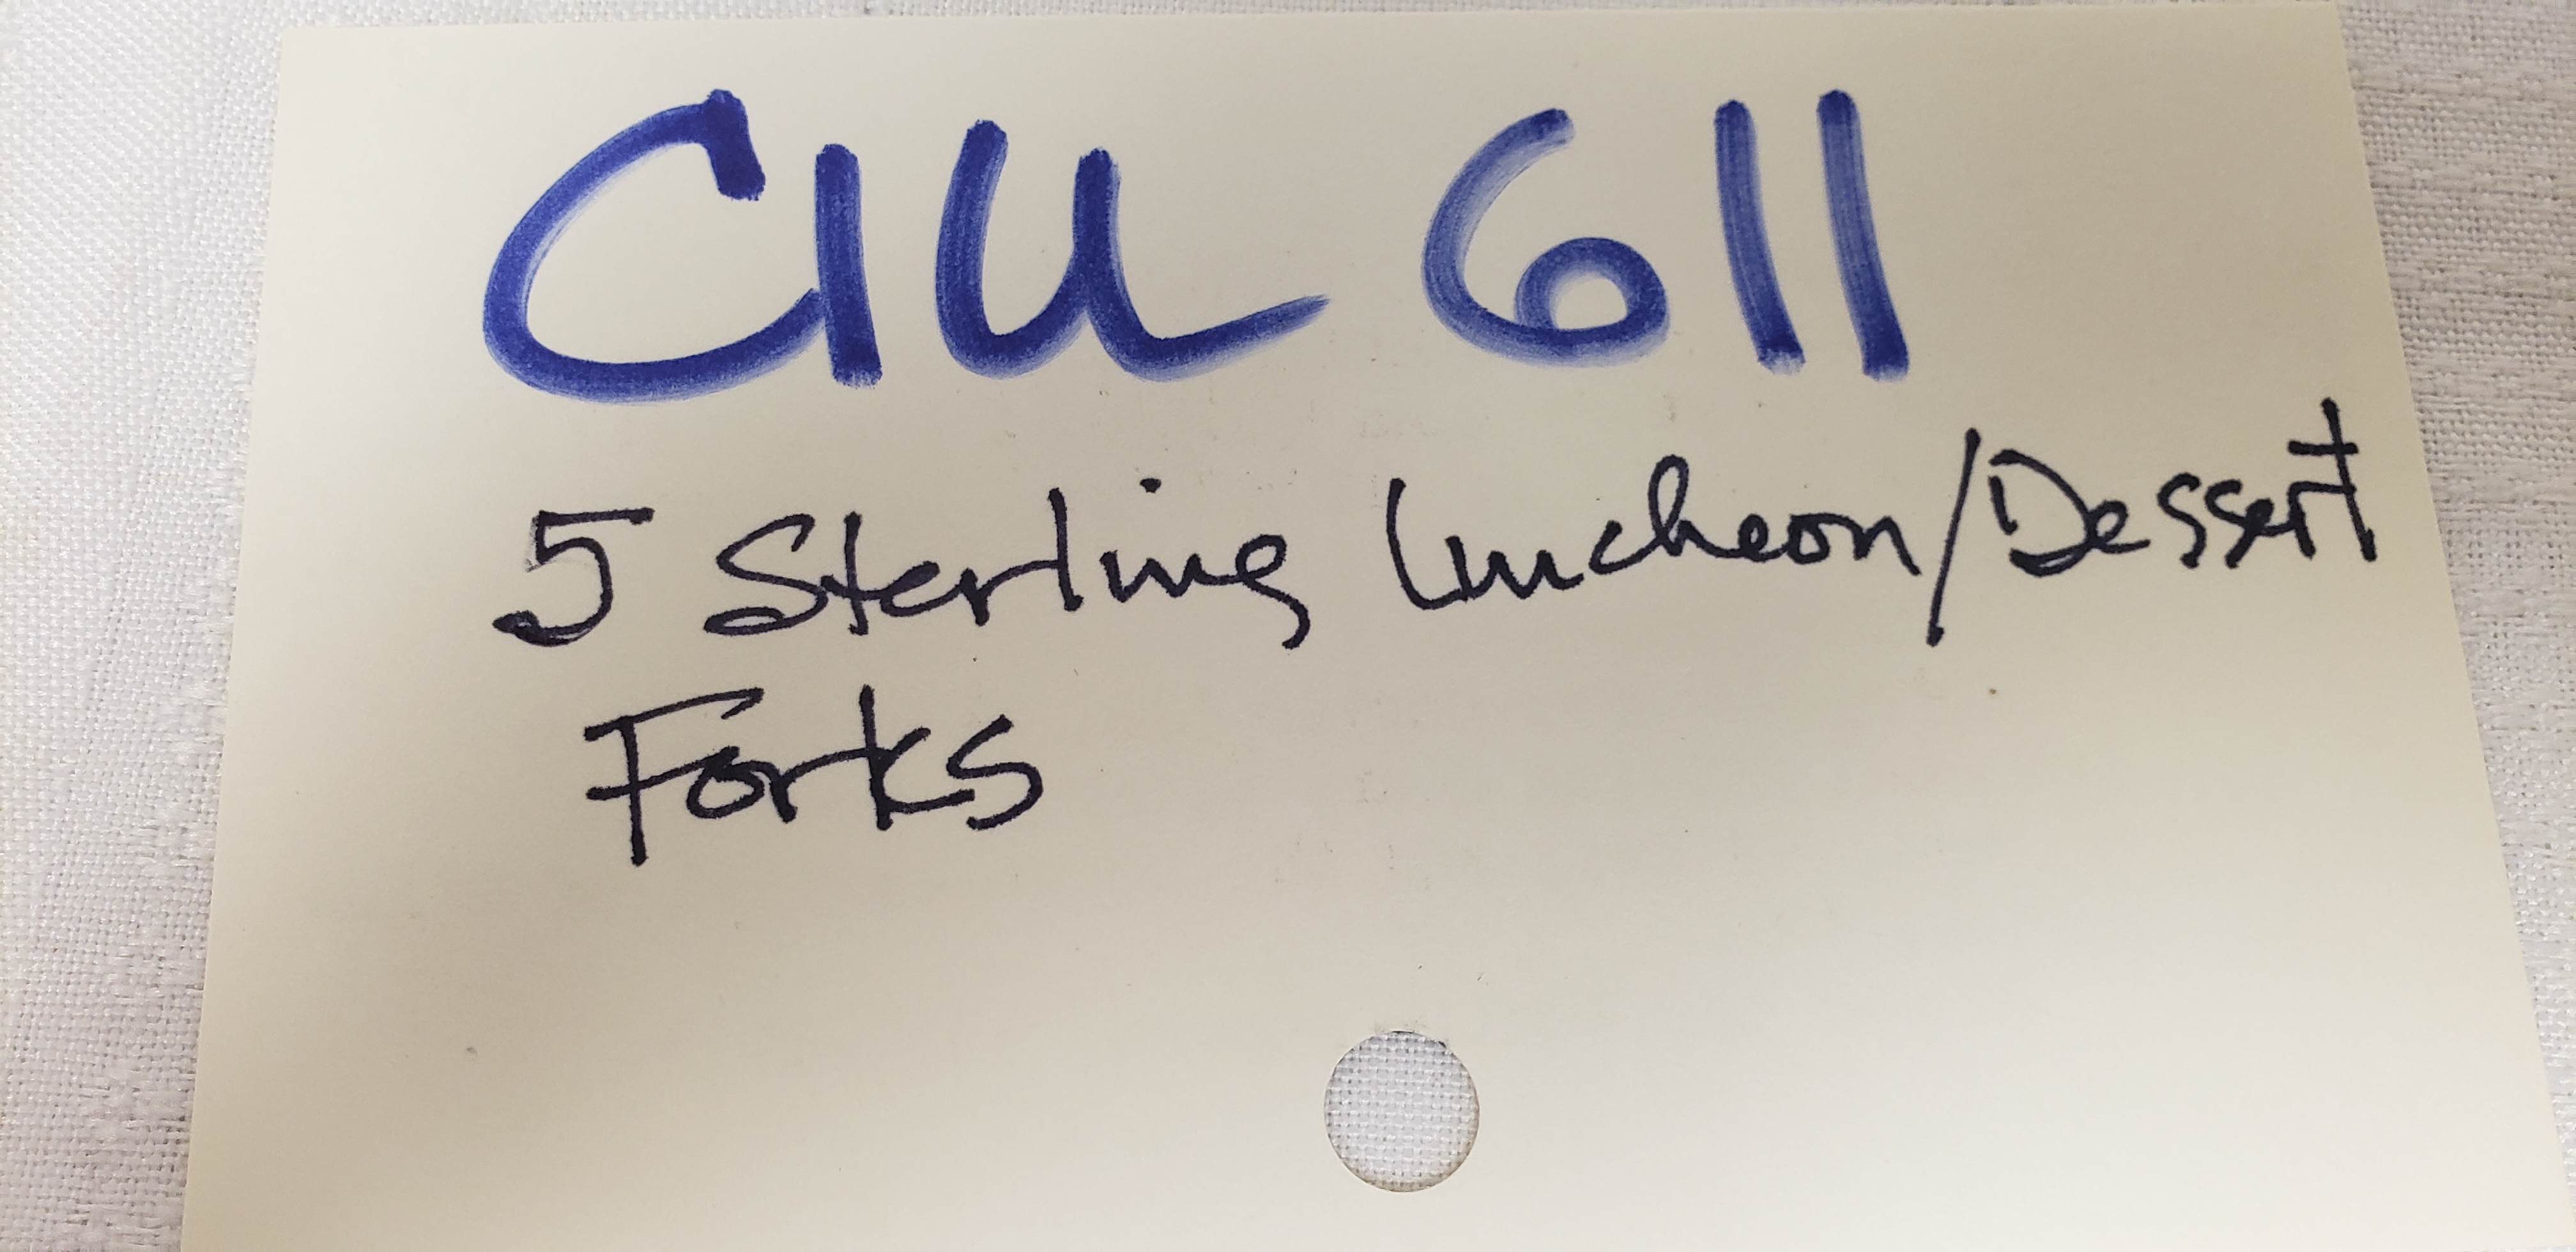 CIU 611
5 Sterling Luncheon/Dessert
Forks